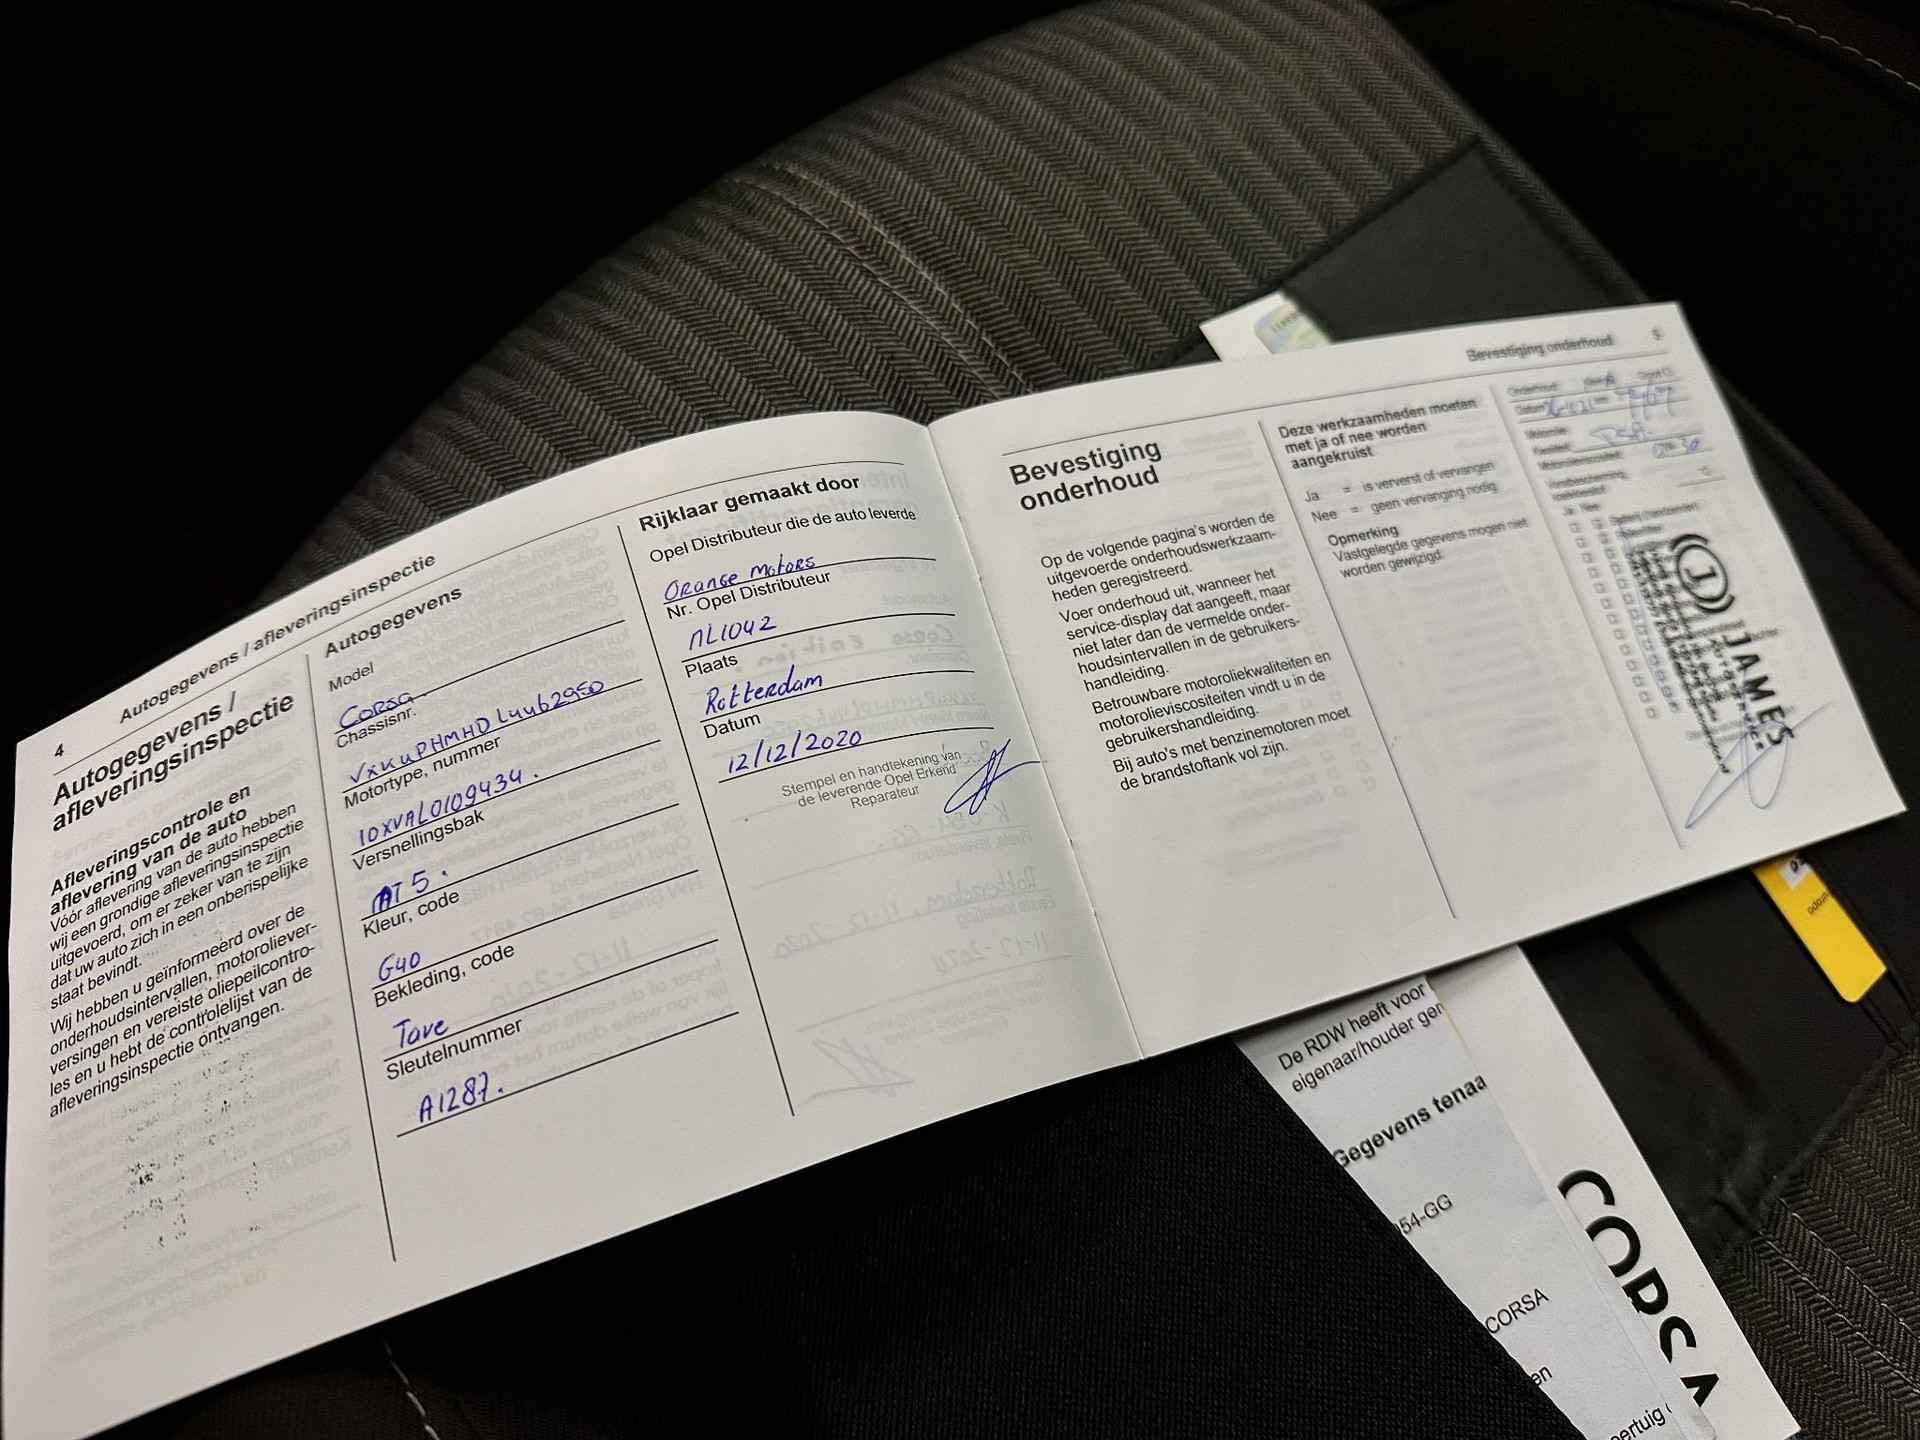 4
Autogegevens / afleveringsinspectie
Autogegevens /
afleveringsinspectie
Afleveringscontrole en
aflevering van de auto
Vóór aflevering van de auto hebben
wij een grondige afleveringsinspectie
uitgevoerd, om er zeker van te zijn
dat uw auto zich in een onberispelijke
staat bevindt.
Wij hebben u geïnformeerd over de
onderhoudsintervallen, motoroliever-
versingen en vereiste oliepeilcontro-
les en u hebt de controlelijst van de
afleveringsinspectie ontvangen.
Autogegevens
Model
Corsa.
Chassisnr.
VXKUPHMHDL4462950
Motortype, nummer
10XVAL0109434.
Versnellingsbak
AT 5.
Kleur, code
G40
Bekleding, code
Tave
Sleutelnummer
A1287.
Rijklaar gemaakt door
Opel Distributeur die de auto leverde
Orange Motors
Nr. Opel Distributeur
NL1042
Plaats
Rotterdam
Datum
12/12/2020
Stempel en handtekening van
de leverende Opel Erkend
Reparateur
Bevestiging onderhoud
5
Bevestiging
onderhoud
Op de volgende pagina's worden de
uitgevoerde onderhoudswerkzaam-
heden geregistreerd.
Voer onderhoud uit, wanneer het
service-display dat aangeeft, maar
niet later dan de vermelde onder-
houdsintervallen in de gebruikers-
handleiding.
Betrouwbare motoroliekwaliteiten en
motorolieviscositeiten vindt u in de
gebruikershandleiding.
Bij auto's met benzinemotoren moet
de brandstoftank vol zijn.
Deze werkzaamheden moeten
met ja of nee worden
aangekruist
Ja = is ververst of vervangen
Nee = geen vervanging nodig
Opmerking
Vastgelegde gegevens mogen niet
worden gewijzigd.
Onderhoud:
Datum
Ja Nee
JAMES
De RDW heeft voor
eigenaar/houder ger
Gegevens tenaa
54-GG
CORSA
en
oertuig
CORSA